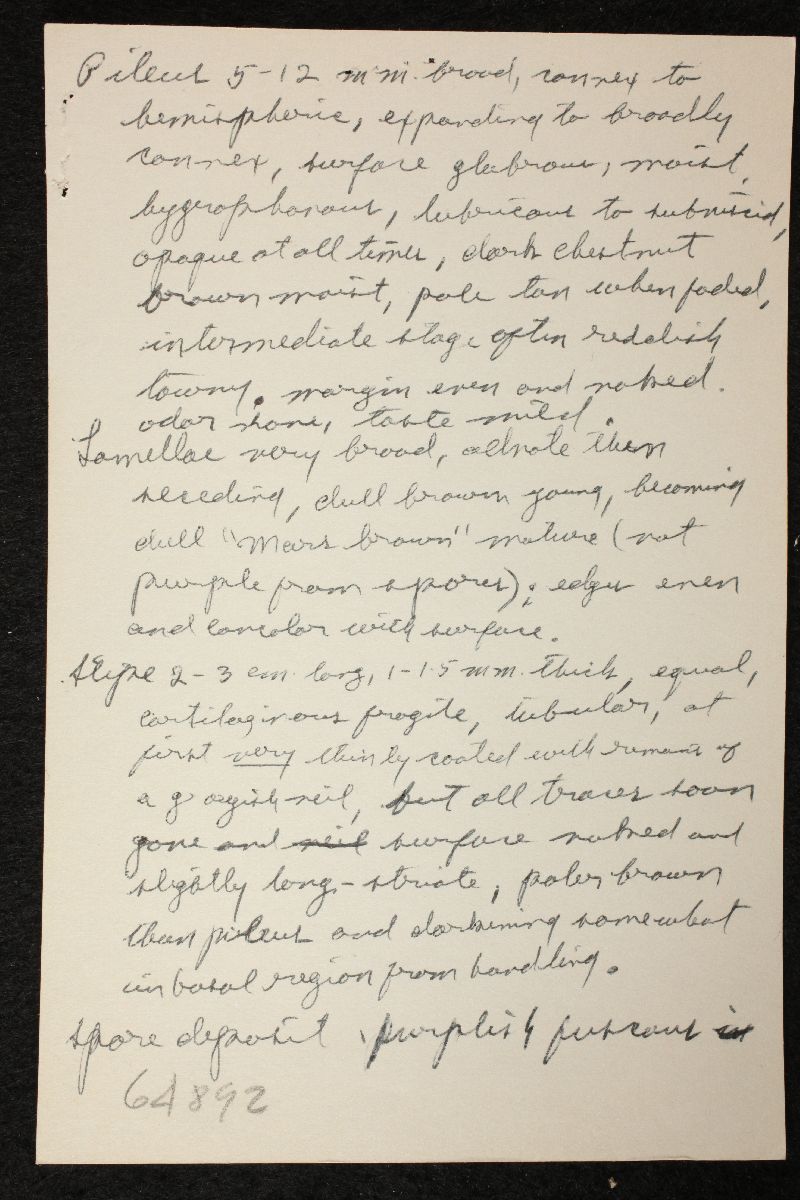 Pileus 5-12 mm broad, convex to
hemispheric, expanding to broadly
convex, surface glabrous, moist,
hygrophanous, lubricous to subviscid,
opaque at all times, dark chestnut
brown moist, pale tan when faded,
intermediate stage often reddish
tawny. margin even and naked.
odor none, taste mild.
Lamellae very broad, adnate then
seceding, dull brown young, becoming
dull "Mars brown" mature (not
purple from spores); edges even
and concolor with surface.
Stipe 2-3 cm long, 1-1.5 mm thick, equal,
cartilaginous fragile, tubular, at
first very thinly coated with remains of
a grayish veil, but all traces soon
gone and veil surface naked and
slightly long-striate, paler brown
than pileus and darkening somewhat
in basal region from handling.
Spore deposit purplish fuscous in
64892